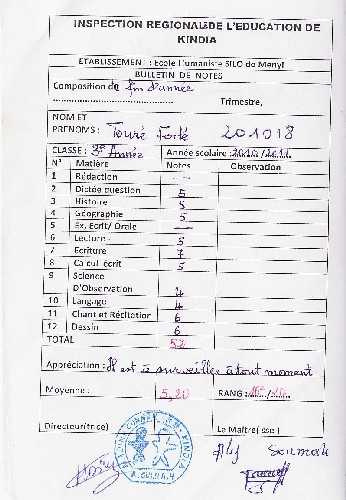 INSPECTION REGIONALE DE L'EDUCATION DE
KINDIA
ETABLISSEMENT : Ecole Humaniste SILO de Manyi
BULLETIN DE NOTES
Composition de fin d'année
Trimestre,
NOM ET
PRENOMS : Touré Fodé 201018
CLASSE : 3e Année Année scolaire : 2010/2011
N° Matière Notes Observation
1 Rédaction —
2 Dictée question 5
3 Histoire 5
4 Géographie 5
5 Ex. Ecrit/ Orale —
6 Lecture 5
7 Ecriture 7
8 Calcul écrit 5
9 Science
D'Observation 4
10 Langage 4
11 Chant et Récitation 6
12 Dessin 6
TOTAL 52
Appréciation : Il est à surveillé à tout moment
Moyenne : 5,20 RANG :
Directeur(trice) Le Maître(sse)
Aly Soumah